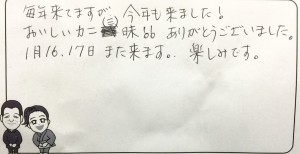 毎年来てますが、今年も来ました!
おいしいカニ三昧♂♂ ありがとうございました。
1月16.17日 また来ます。楽しみです。